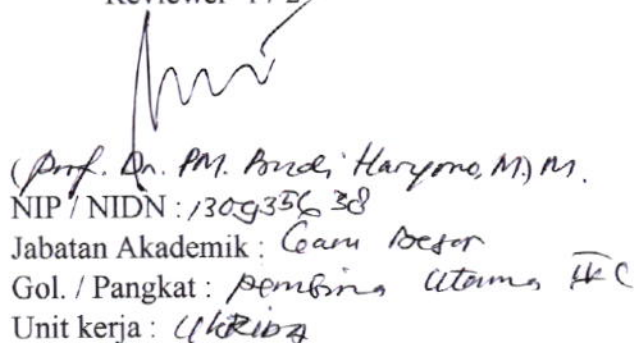 Reviewer 1 / 2
(Prof. Dr. PM. Budi Haryono, M.) M.
NIP / NIDN : 130935638
Jabatan Akademik : Guru Besar
Gol. / Pangkat : Pembina Utama IV C
Unit kerja : UKRIDA